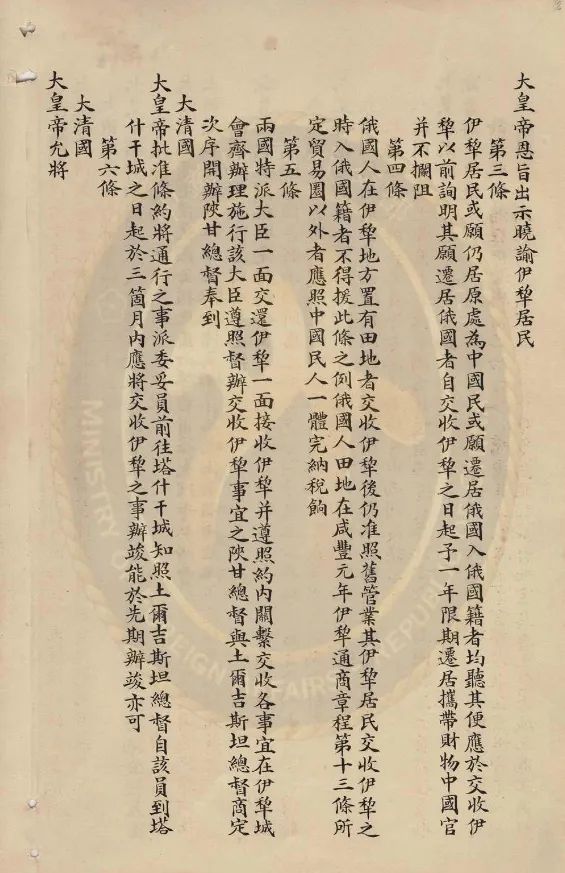 大皇帝恩旨出示曉諭伊犂居民
第三條
伊犂居民或願仍居原處為中國民或願遷居俄國入俄國籍者均聽其便應於交收伊
犂以前詢明其願遷居俄國者自交收伊犂之日起予一年限期遷居攜帶財物中國官
并不攔阻
第四條
俄國人在伊犂地方置有田地者交收伊犂後仍准照舊管業其伊犂居民交收伊犂之
時入俄國籍者不得援此條之例俄國人田地在咸豐元年伊犂通商章程第十三條所
定貿易圈以外者應照中國民人一體完納稅餉
第五條
兩國特派大臣一面交還伊犂一面接收伊犂并遵照約內關繫交收各事宜在伊犂城
會齊辦理施行該大臣遵照督辦交收伊犂事宜之陝甘總督與土爾吉斯坦總督商定
次序開辦陝甘總督奉到
大清國
大皇帝批准條約將通行之事派委妥員前往塔什干城知照土爾吉斯坦總督自該員到塔
什干城之日起於三箇月內應將交收伊犂之事辦竣能於先期辦竣亦可
第六條
大清國
大皇帝允將
MINISTRY OF FOREIGN AFFAIRS REPU